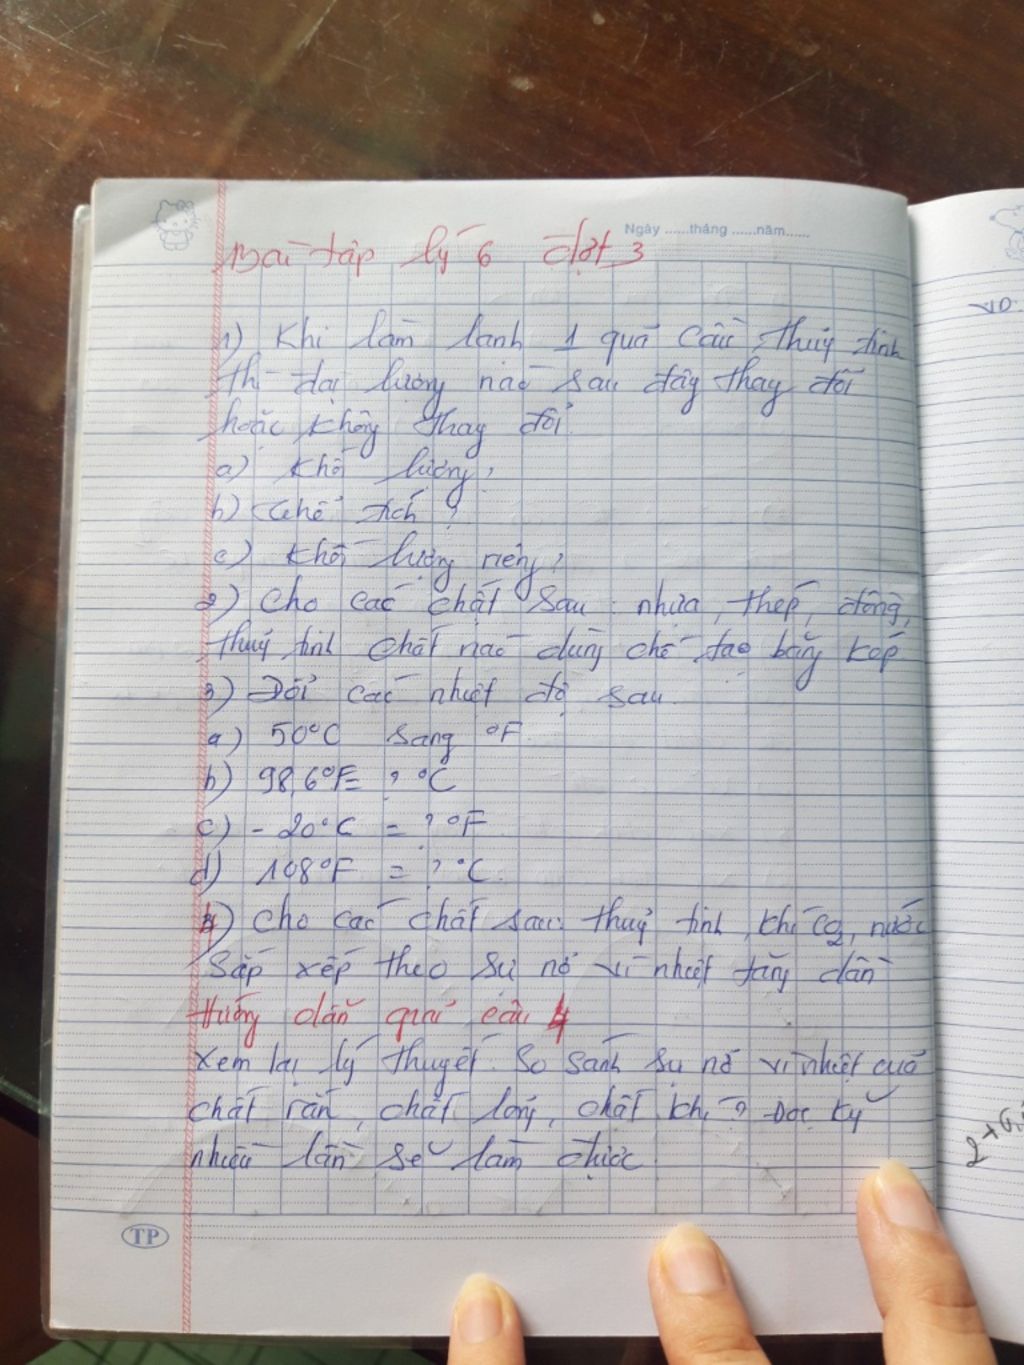 Ngày ......tháng ......năm......
Bài tập lý 6 đợt 3
1) Khi làm lạnh 1 quả cầu thủy tinh
thì đại lượng nào sau đây thay đổi
hoặc không thay đổi
a) Khối lượng?
b) Thể tích?
c) Khối lượng riêng?
2) Cho các chất sau: nhựa, thép, đồng,
thuỷ tinh chất nào dùng chế tạo băng kép
3) Đổi các nhiệt độ sau.
a) 50°C sang °F.
b) 98,6°F= ? °C
c) - 20°C = ? °F
d) 108°F = ? °C.
4) Cho các chất sau: thuỷ tinh, khí CO2, nước
Sắp xếp theo sự nở vì nhiệt tăng dần
Hướng dẫn quá câu 4
Xem lại lý thuyết. So sánh sự nở vì nhiệt của
chất rắn, chất lỏng, chất khí? Đọc kỹ
nhiều lần sẽ làm được.
TP